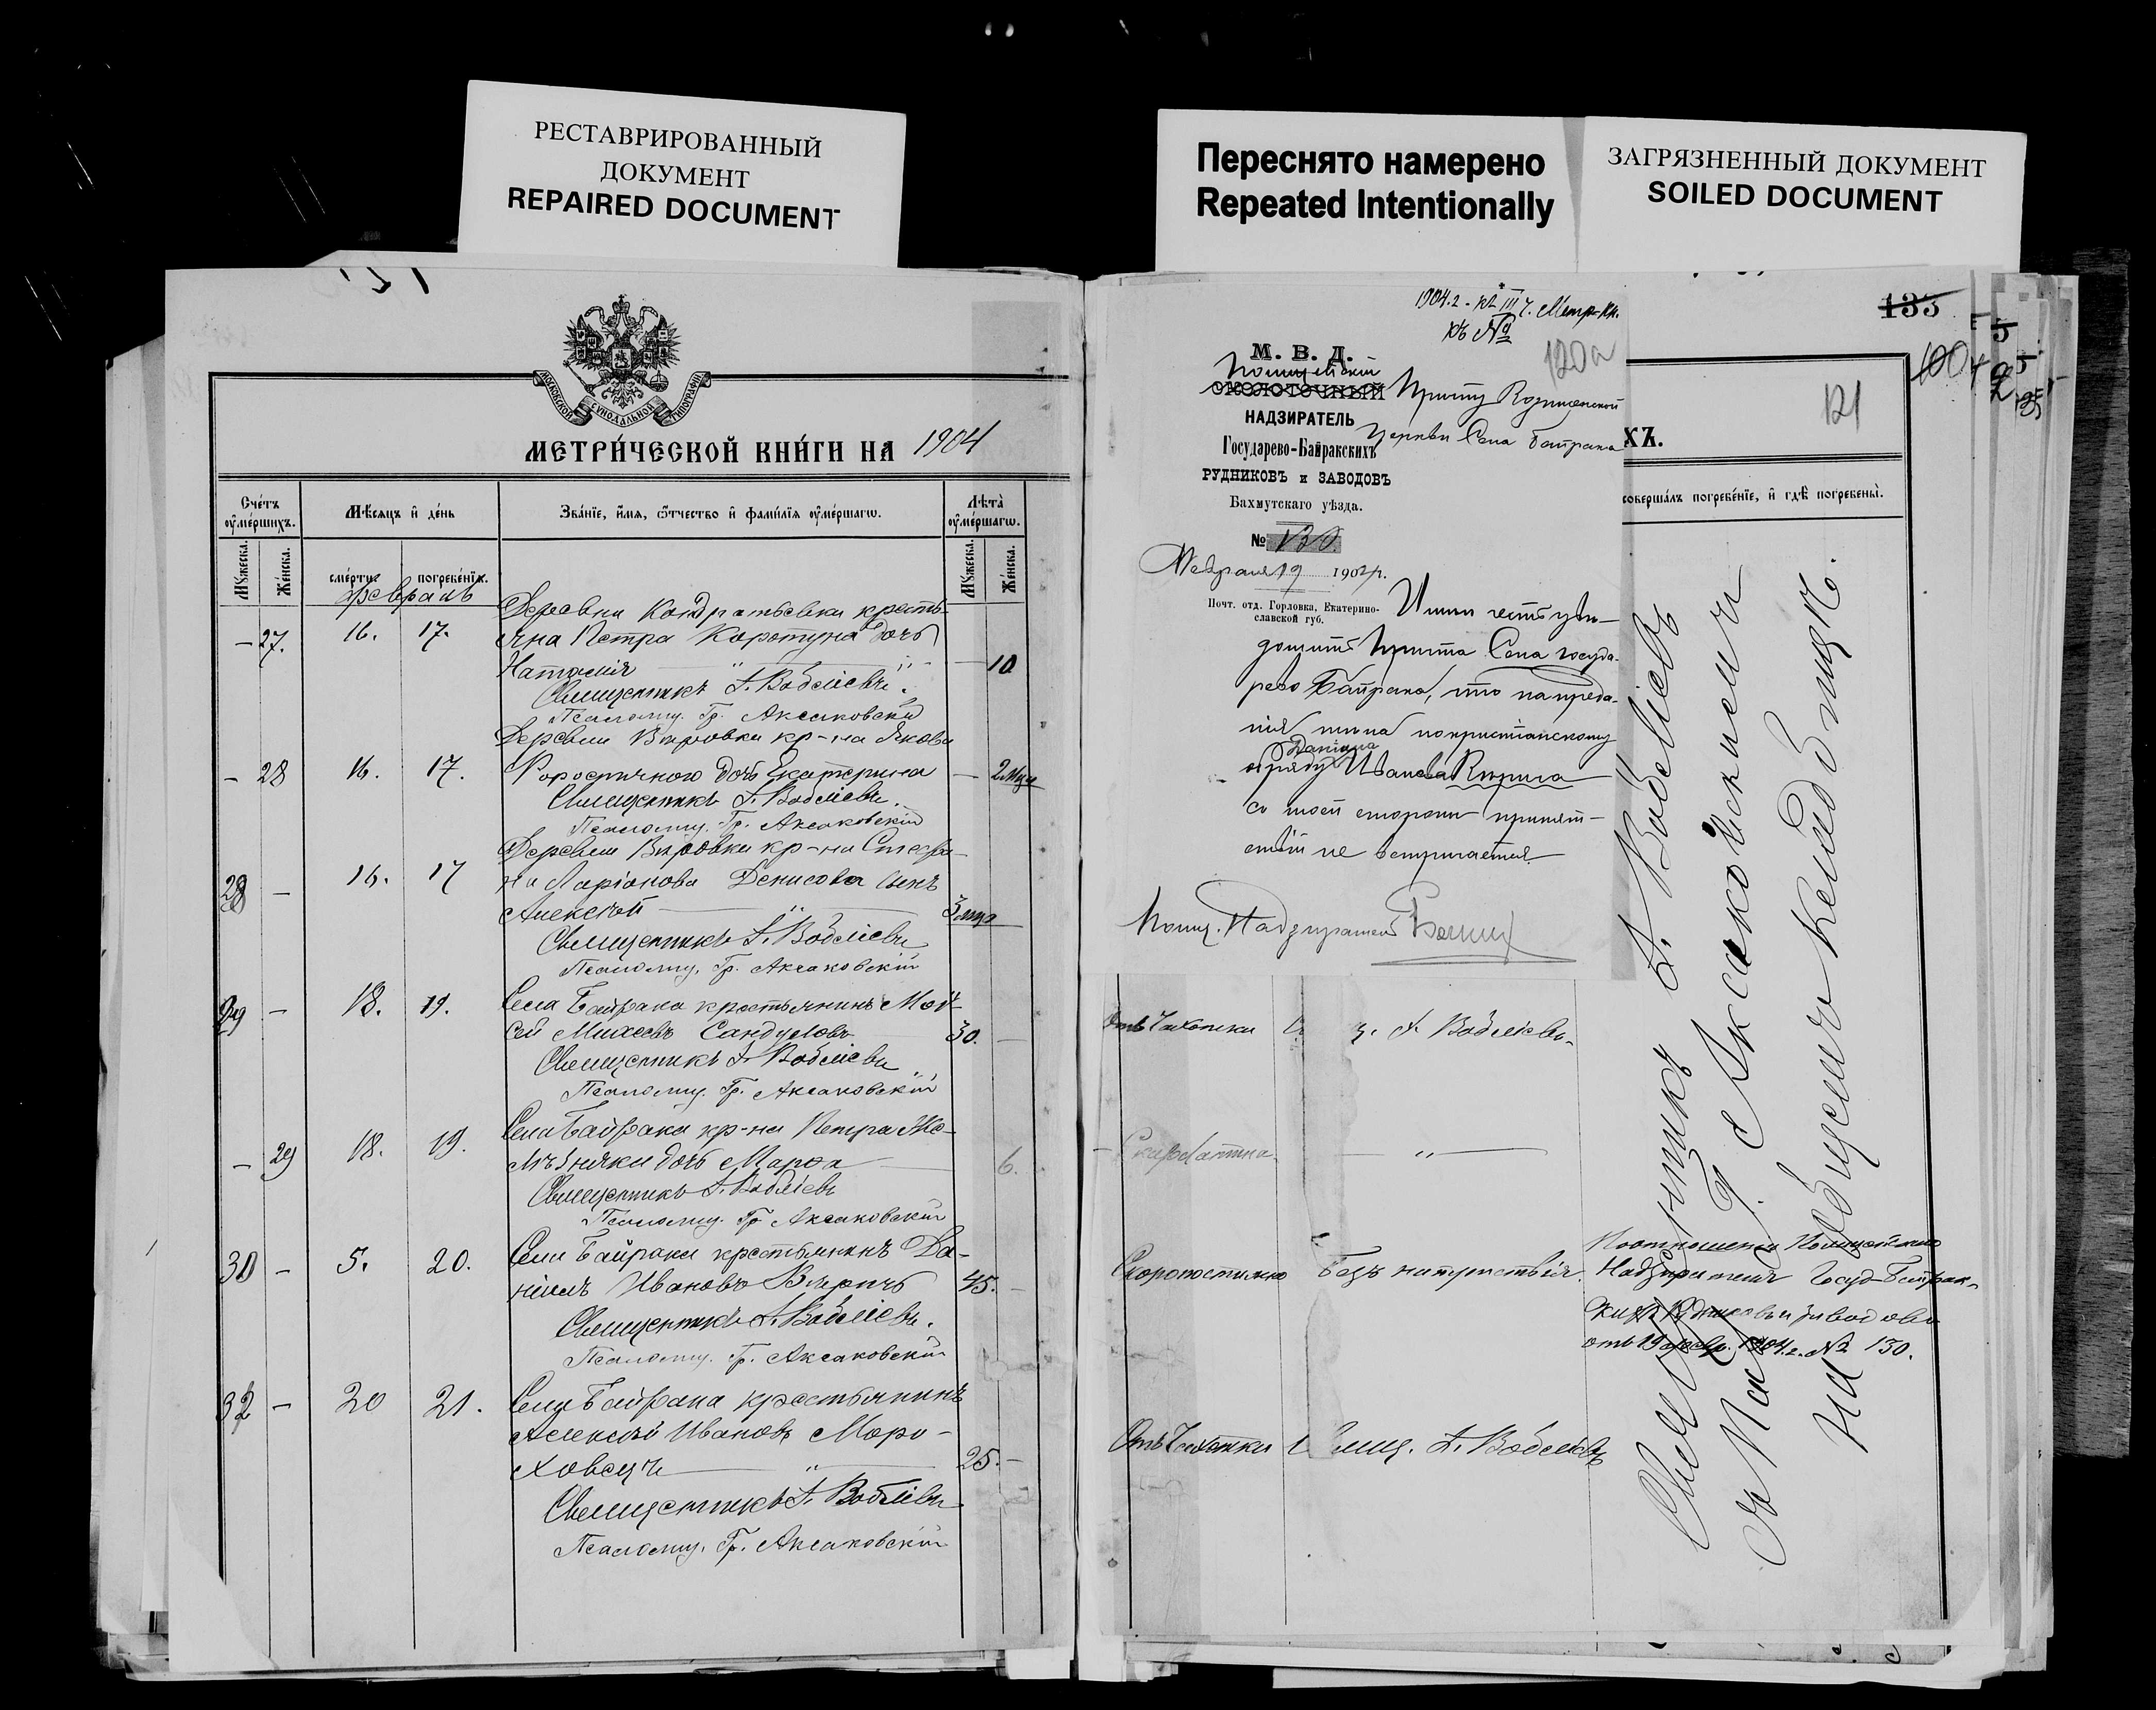 РЕСТАВРИРОВАННЫЙ
ДОКУМЕНТ
REPAIRED DOCUMENT
Переснято намерено
Repeated Intentionally
ЗАГРЯЗНЕННЫЙ ДОКУМЕНТ
SOILED DOCUMENT
МОСКОВСКОЙ СѴНОДАЛЬНОЙ ТИПОГРАФІИ
МЕТРИ́ЧЕСКОЙ КНИ́ГИ НА 1904
Сче́тъ оу҆ме́ршихъ.
Мѣ́сяцъ и҆ де́нь
Зва́нїе, и҆́мя, ѻ҆́тчество и҆ фами́лїя оу҆ме́ршагѡ.
Лѣта̀ оу҆ме́ршагѡ.
Мꙋ́жеска.
Же́нска.
сме́рти.
погребе́нїѧ.
Мꙋ́жеска.
Же́нска.
Февраль
Деревни Кондратьевки кресть-
— 27. 16. 17. яна Петра Коротуна дочь
Наталія — „ — 10
Священникъ А. Воблiевъ.
Псаломщ. Гр. Аксаковскій
Деревни Вировки кр-на Якова
— 28 16. 17. Хоростичного дочь Екатерина — 2 мца
Священникъ А. Воблiевъ.
Псаломщ. Гр. Аксаковскій
Деревни Вировки кр-на Стефа-
28 — 16. 17 на Ларіонова Денисова сынъ
Алексѣй — „ — 3 мца
Священникъ А. Воблiевъ
Псаломщ. Гр. Аксаковскій
29 — 18. 19. Села Байрака крестьянинъ Мой-
сей Михеевъ Сандуловъ 30. —
Священникъ А. Воблiевъ
Псаломщ. Гр. Аксаковскій
Села Байрака кр-на Петра Же-
— 29 18. 19. лѣзняки дочь Марфа — 6.
Священникъ А. Воблiевъ
Псаломщ. Гр. Аксаковскій
30 — 5. 20. Села Байрака крестьянинъ Да-
ніилъ Ивановъ Виричъ 45. —
Священникъ А. Воблiевъ.
Псаломщ. Гр. Аксаковскій
32 — 20 21. Села Байрака крестьянинъ
Алексѣй Ивановъ Моро-
ховецъ — „ — 25. —
Священникъ А. Воблiевъ
Псаломщ. Гр. Аксаковскій
1904 г. къ III ч. Метр. кн.
къ №
120а
М. В. Д.
Полицейскій
ОКОЛОТОЧНЫЙ
НАДЗИРАТЕЛЬ
Государево-Байракскихъ
РУДНИКОВЪ и ЗАВОДОВЪ
Бахмутскаго уѣзда.
№ 130.
Февраля 19 1904 г.
Почт. отд. Горловка, Екатерино-
славской губ.
Причту
Церкви Села Байрака
Имѣю честь увѣ-
домить причта Села Госуда-
рево Байрака, что на преда-
нія тѣла по христіанскому
обряду Даніила Иванова Вирича
со моей стороны препят-
ствій не встрѣчается
Полиц. Надзиратель
133
121
ХЪ.
соверша́лъ погребе́нїе, и҆ гдѣ̀ погребены̀.
Отъ Чахотки А. Воблiевъ.
Скарлатина — „ —
Скоропостижно Безъ напутствія. По отношенію Полицейскаго
Надзирателя Госуд-Байрак-
скихъ Рудниковъ и заводовъ
отъ 19 февр. 1904 г. № 130.
Отъ Чахотки А. Воблiевъ
Священникъ А. Воблiевъ
Аксаковскій